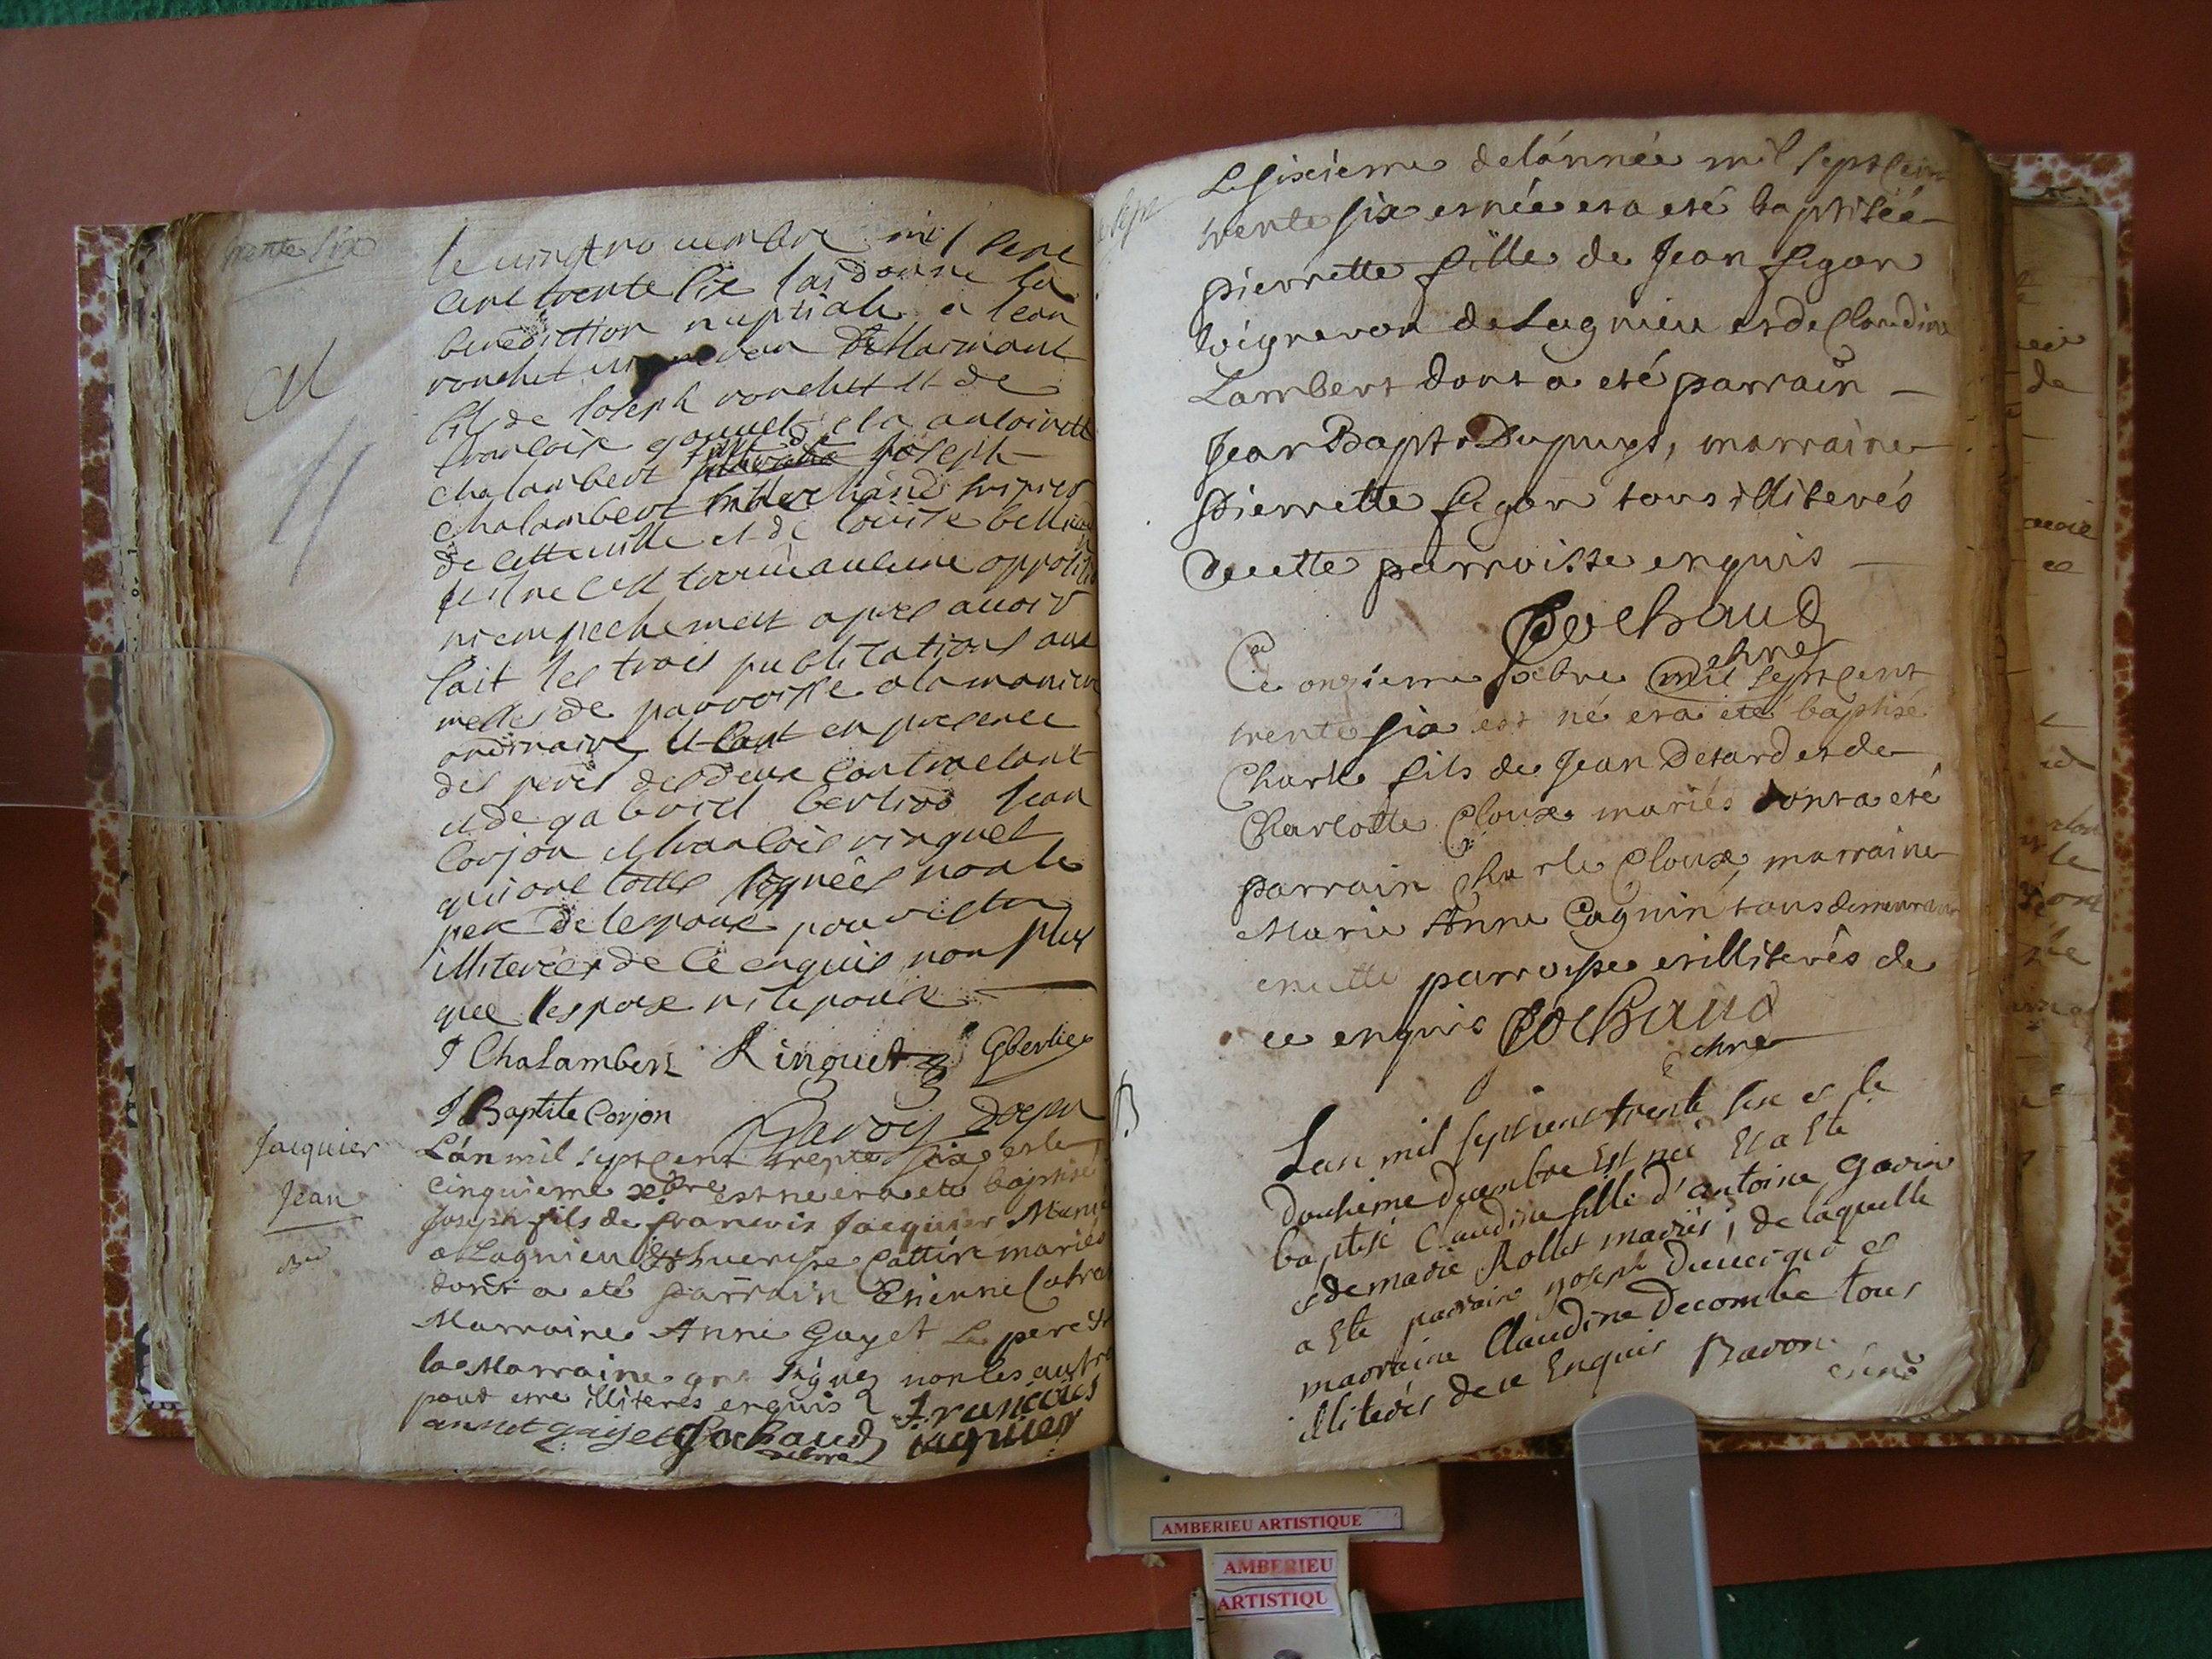 trente six
le vingt novembre mil sept
cent trente six j'ai donné la
benediction nuptiale a Jean
ronchet
fils de Joseph ronchet et de
francoise et a antoinette
chalambert fille de Joseph
chalambert
de cette ville et de louise
il ne s'est trouvé aucune opposition
ni empechement apres avoir
fait les trois publications aux
messes de parroisse a la maniere
ordinaire le tout en presence
des peres des deux contractant
et de gabriel berlioz Jean
Corjon et francois ringuet
qui ont touts signées non le
pere de lepoux pour estre
illiterées de ce enquis non plus
que lespoux ni lepouse
J Chalambert Ringuet GBerlie
J Baptite Corjon
Jacquier
Jean
L'an mil septcent trente six et le
cinquieme xbre est né et a eté baptisé
Joseph fils de francois Jacquier
a Lagnieu et huenise Cattin mariés
dont a eté parrain Etienne
Marraine Anne Guyet Le pere et
la Marraine ont signez non les autres
pour etre illiteres enquis
francois
jaquier
Pochaud
Le sixieme de l'année mil septcent
trente six est née et a eté baptisée
pierrette fille de Jean figon
vigneron de Lagnieu et de Claudine
Lambert dont a eté parrain
Jean Bapt Dupuys, marraine
Pierrette figon tous illiterés
de cette parroisse enquis
Pochaud
Ce onzieme xbre mil septcent
trente six est né et a eté baptisé
Charle fils de Jean Detard et de
Charlotte Cloux mariés dont a eté
parrain Charle Cloux, marraine
Marie Anne Cagnin tous demeurant
en cette parroisse et illiterés de
ce enquis Pochaud
B
Lan mil sept cent trente six et le
douzieme decembre Est née Et a Ete
baptisé Claudine fille d'antoine Gavin
et de marie Rollet mariés, de laquelle
a Ete parrain joseph et
marraine Claudine Decombe tous
illiterés de ce Enquis Bavon
AMBERIEU ARTISTIQUE
AMBERIEU
ARTISTIQU